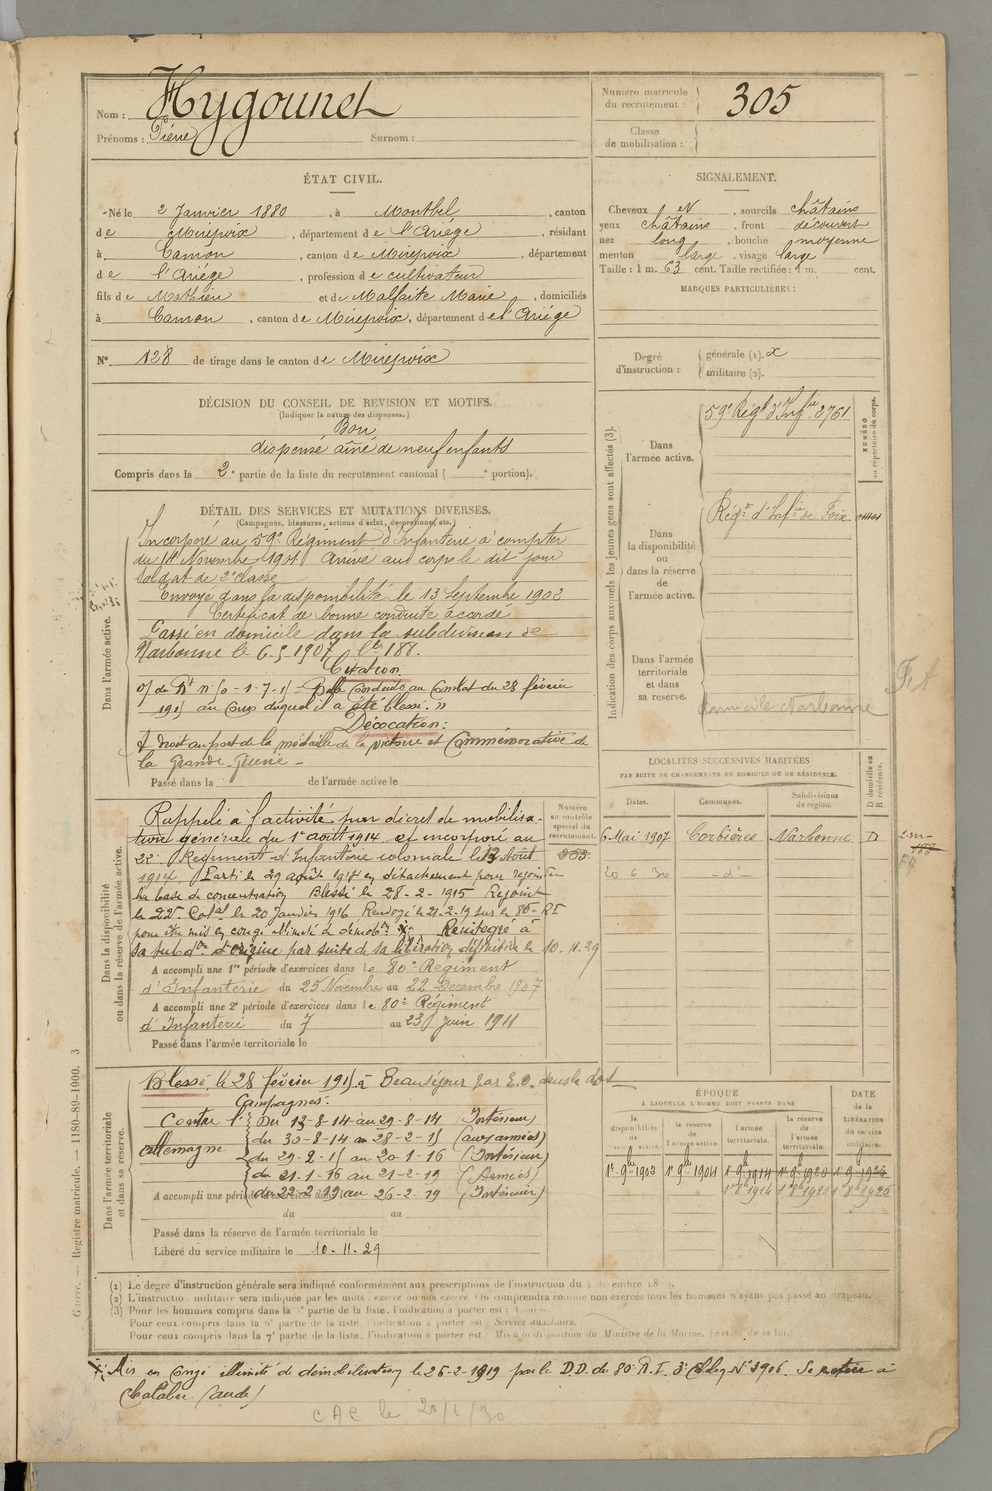 Nom : Hygounet
Prénoms : Pierre Surnom :
Numéro matricule du recrutement : 305
Classe de mobilisation :
ÉTAT CIVIL.
Né le 2 Janvier 1880, à Montbel, canton
de Mirepoix, département de l'Ariége, résidant
à Camon, canton de Mirepoix, département
de l'Ariége, profession de cultivateur
fils de Mathieu et de Malfaite Marie, domiciliés
à Camon, canton de Mirepoix, département de l'Ariége
N° 128 de tirage dans le canton de Mirepoix
SIGNALEMENT.
Cheveux et, sourcils châtains
yeux châtains, front découvert
nez long, bouche moyenne
menton large, visage large
Taille : 1 m. 63 cent. Taille rectifiée : 1 m. cent.
MARQUES PARTICULIÈRES :
Degré d'instruction : générale (1). militaire (2).
DÉCISION DU CONSEIL DE REVISION ET MOTIFS.
(Indiquer la nature des dispenses.)
Bon
dispensé aîné de neuf enfants
Compris dans la 2e partie de la liste du recrutement cantonal ( e portion).
DÉTAIL DES SERVICES ET MUTATIONS DIVERSES.
(Campagnes, blessures, actions d'éclat, décorations, etc.)
Dans l'armée active.
Incorporé au 59e Régiment d'Infanterie à compter
du 14 Novembre 1901 Arrivé au corps le dit jour
soldat de 2e classe
Envoyé dans la disponibilité le 13 Septembre 1902
Certificat de bonne conduite accordé
Passé en domicile dans la subdivision de
Narbonne le 6-5-1907 188.
Citation.
Belle Conduite au Combat du 28 février
1915 au Cours duquel il a été blessé. »
Décoration :
A droit au port de la médaille de la victoire et Commémorative de
la Grande-Guerre -
Passé dans la de l'armée active le
Indication des corps auxquels les jeunes gens sont affectés (3).
Dans l'armée active. 59e Régt d'Infie 2761
NUMÉRO au répertoire du corps.
Dans la disponibilité ou dans la réserve de l'armée active. Régt d'Infie de Foix
Dans l'armée territoriale et dans sa réserve.
Domicile Narbonne
FA
LOCALITÉS SUCCESSIVES HABITÉES
PAR SUITE DE CHANGEMENTS DE DOMICILE OU DE RÉSIDENCE.
Dates. Communes. Subdivisions de région. D domicile ou R résidence.
6 Mai 1907 Corbières Narbonne D
20 6 30 - d° -
Dans la disponibilité ou dans la réserve de l'armée active.
Numéro au contrôle spécial du recrutement.
Rappelé à l'activité par décret de mobilisa-
tion générale du 1er août 1914 et incorporé au
22e Régiment d'Infanterie coloniale le 13 Août
1914. Parti le 29 août 1914 en détachement pour rejoindre
la base de concentration Blessé le 28-2-1915 Rejoint
le 22e Colal le 20 Janvier 1916 Renvoyé le 21-2-19 sur le 80e RI
pour être mis en congé illimité de démobon X. Réintegré à
sa subdon d'origine par suite de sa libération définitive le 10-11-29
A accompli une 1re période d'exercices dans le 80e Régiment
d'Infanterie du 25 Novembre au 22 Decembre 1907
A accompli une 2e période d'exercices dans le 80e Régiment
d'Infanterie du 7 au 23 Juin 1911
Passé dans l'armée territoriale le
Dans l'armée territoriale et dans sa réserve.
Blessé, le 28 février 1915 à Beauséjour par E.O. dans le dos
Campagnes :
Contre l'Allemagne
Du 13-8-14 au 29-8-14 (Intérieur)
du 30-8-14 au 28-2-15 (aux armées)
du 29-2-15 au 20-1-16 (Intérieur)
du 21-1-16 au 21-2-19 (Armées)
du 22-2-19 au 26-2-19 (Intérieur)
A accompli une période
du au
Passé dans la réserve de l'armée territoriale le
Libéré du service militaire le 10-11-29
ÉPOQUE
À LAQUELLE L'HOMME DOIT PASSER DANS
la disponibilité de l'armée active. la réserve de l'armée active. l'armée territoriale. la réserve de l'armée territoriale.
DATE de la LIBÉRATION du service militaire.
1er 9bre 1903 1er 9bre 1904 1er 9bre 1914 1er 9bre 1920 1er 9bre 1926
1er 8bre 1914 1er 8bre 1920 1er 8bre 1926
(1) Le degré d'instruction générale sera indiqué conformément aux prescriptions de l'instruction du
(2) L'instruction militaire sera indiquée par les mots : exercé ou non exercé. On comprendra comme non exercés tous les hommes n'ayant pas passé au drapeau.
(3) Pour les hommes compris dans la partie de la liste, l'indication à porter est :
Pour ceux compris dans la 6e partie de la liste l'indication à porter est : Service auxiliaire.
Pour ceux compris dans la 7e partie de la liste, l'indication à porter est : Mis à la disposition du Ministre de la Marine. (Art. de la loi.)
X Mis en Congé illimité de démobilisation le 26-2-1919 par le D.D. du 80e R.I. N° 3906. Se retire à
Chalabre (Aude)
CAC le 20/6/30
Guerre. — Registre matricule. — 1180-89-1900. 3